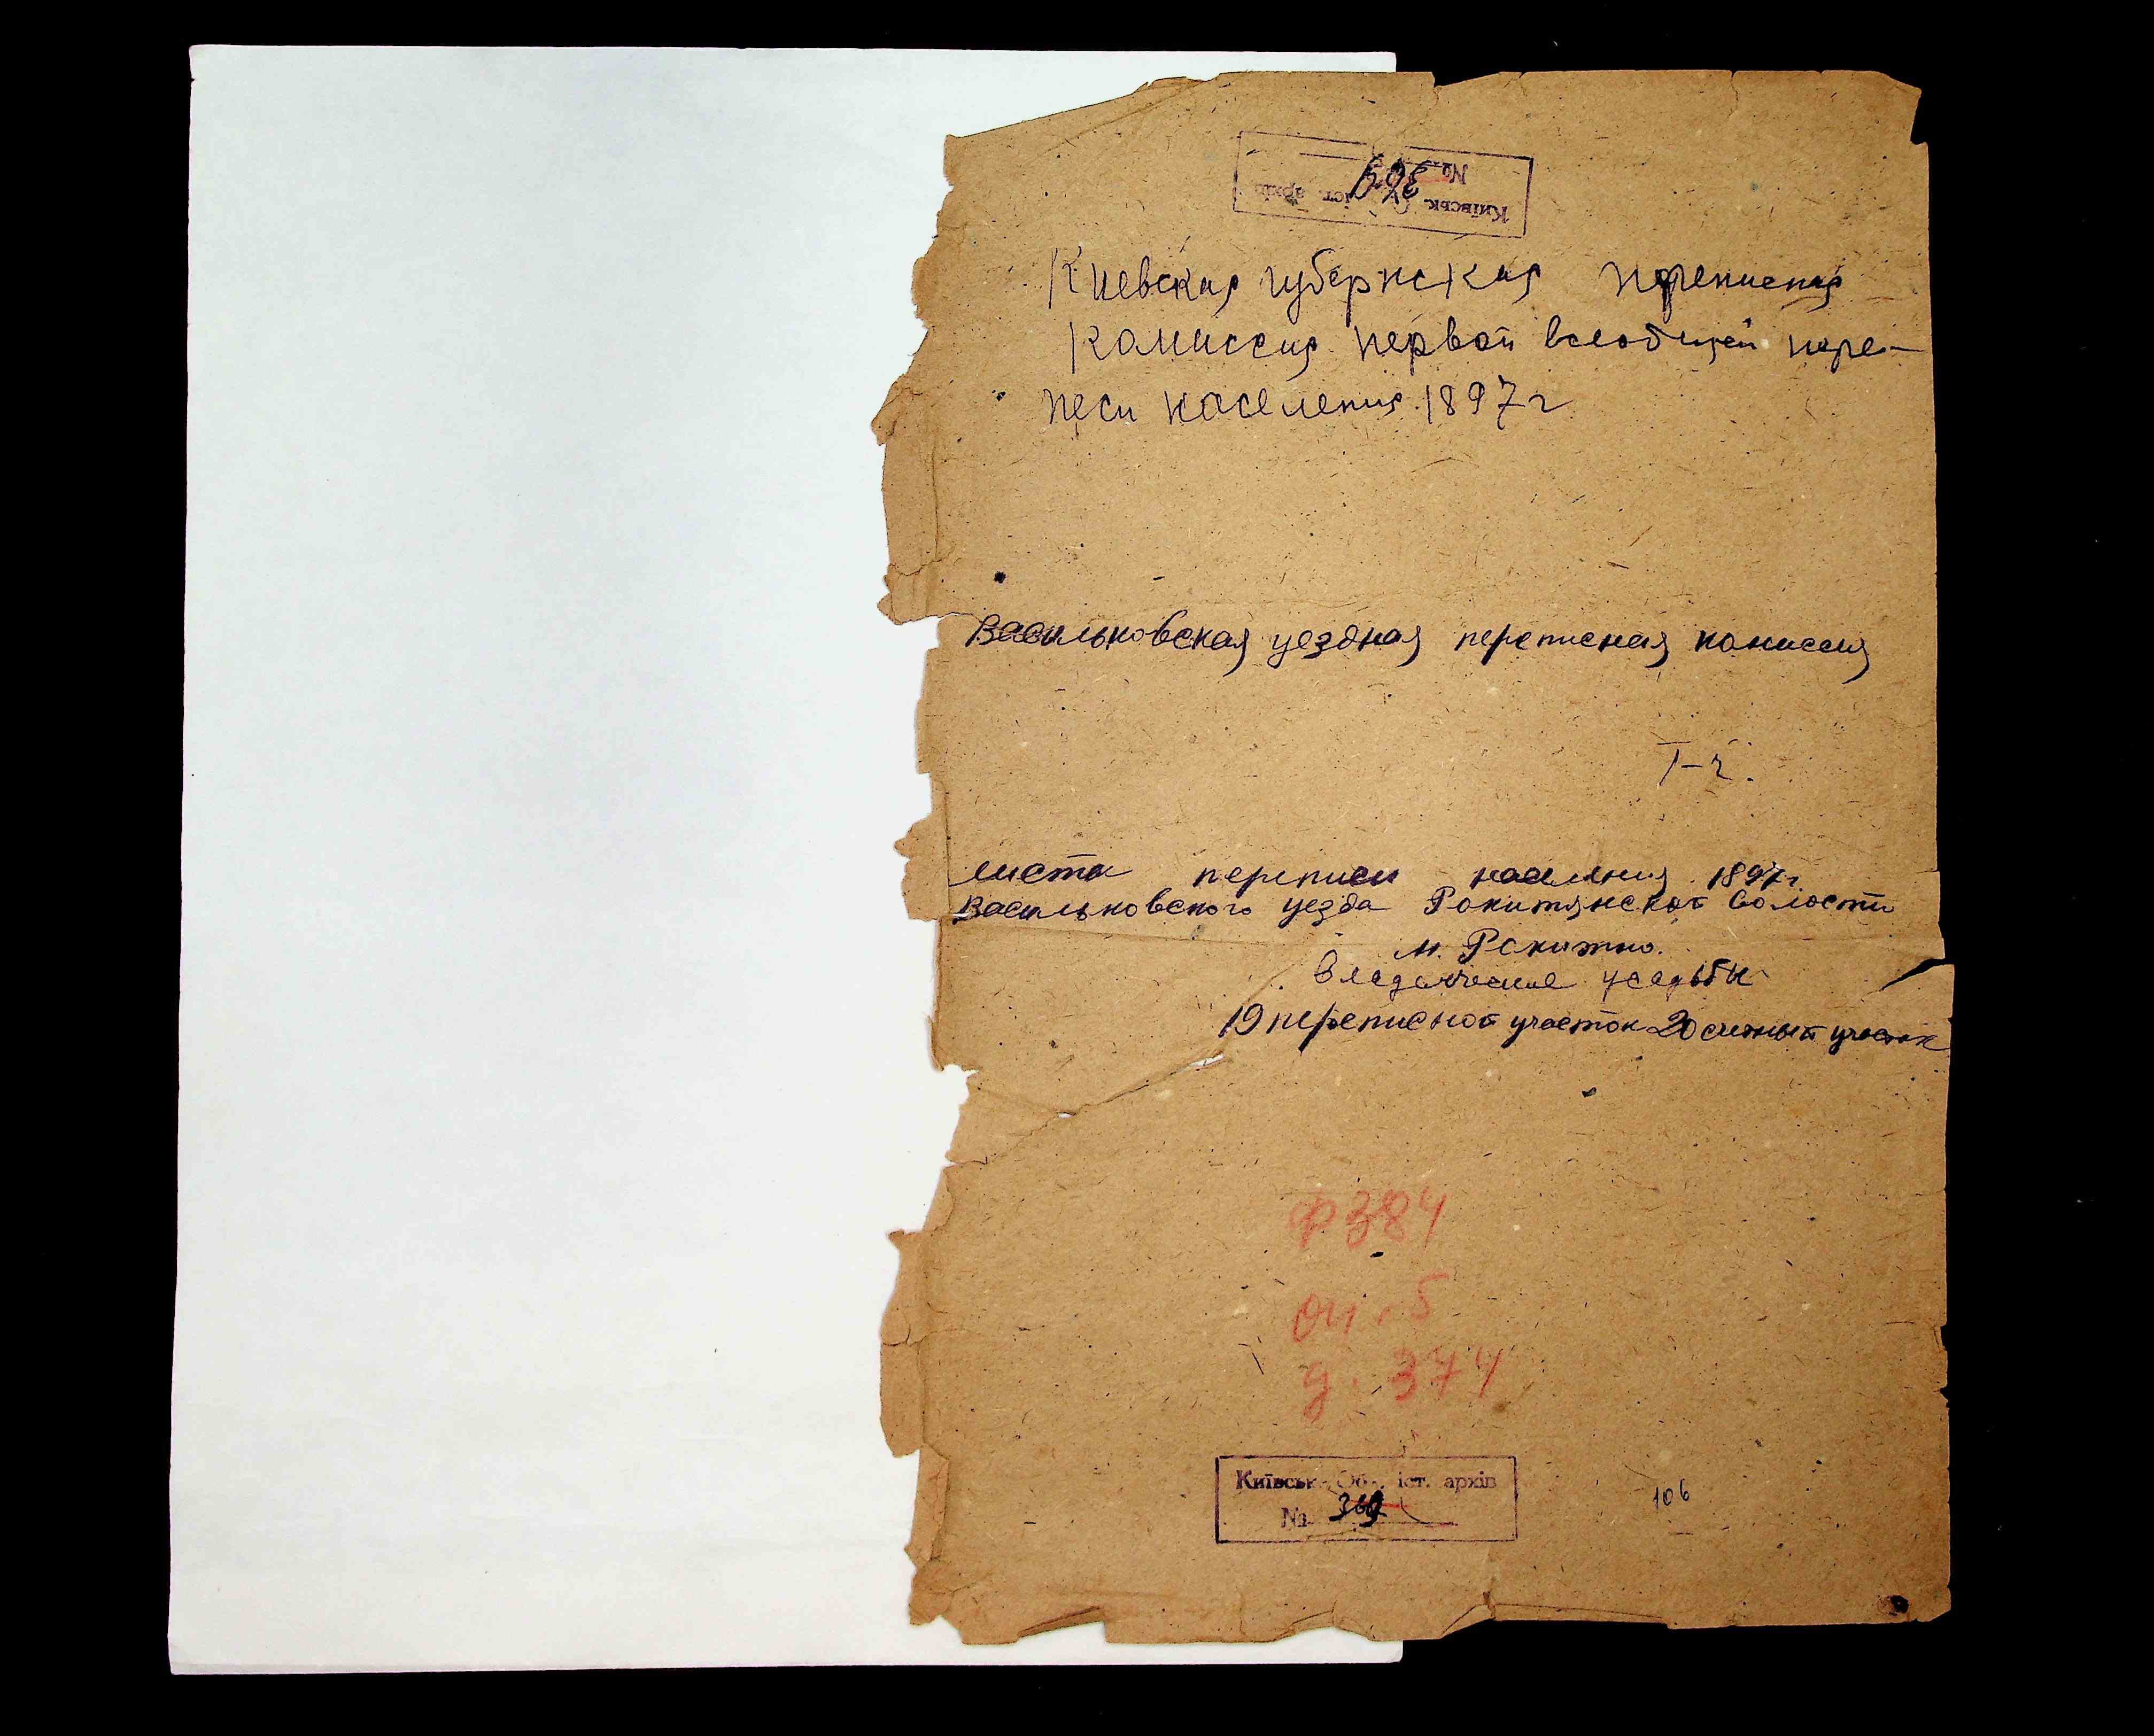 Київськ. Об. іст. архів
№ 369
Киевская губернская переписная
комиссия первой всеобщей пере-
писи населения 1897 г
Васильковская уездная переписная комиссия
I-ч.
листы переписи населения 1897г.
Васильковского уезда Рокитянской волости
м. Рокитно.
Владельческие усадьбы
19 переписной участок 20 счетный участок
Ф 384
оп. 5
д. 374
Київськ. Об. іст. архів
№ 369
106